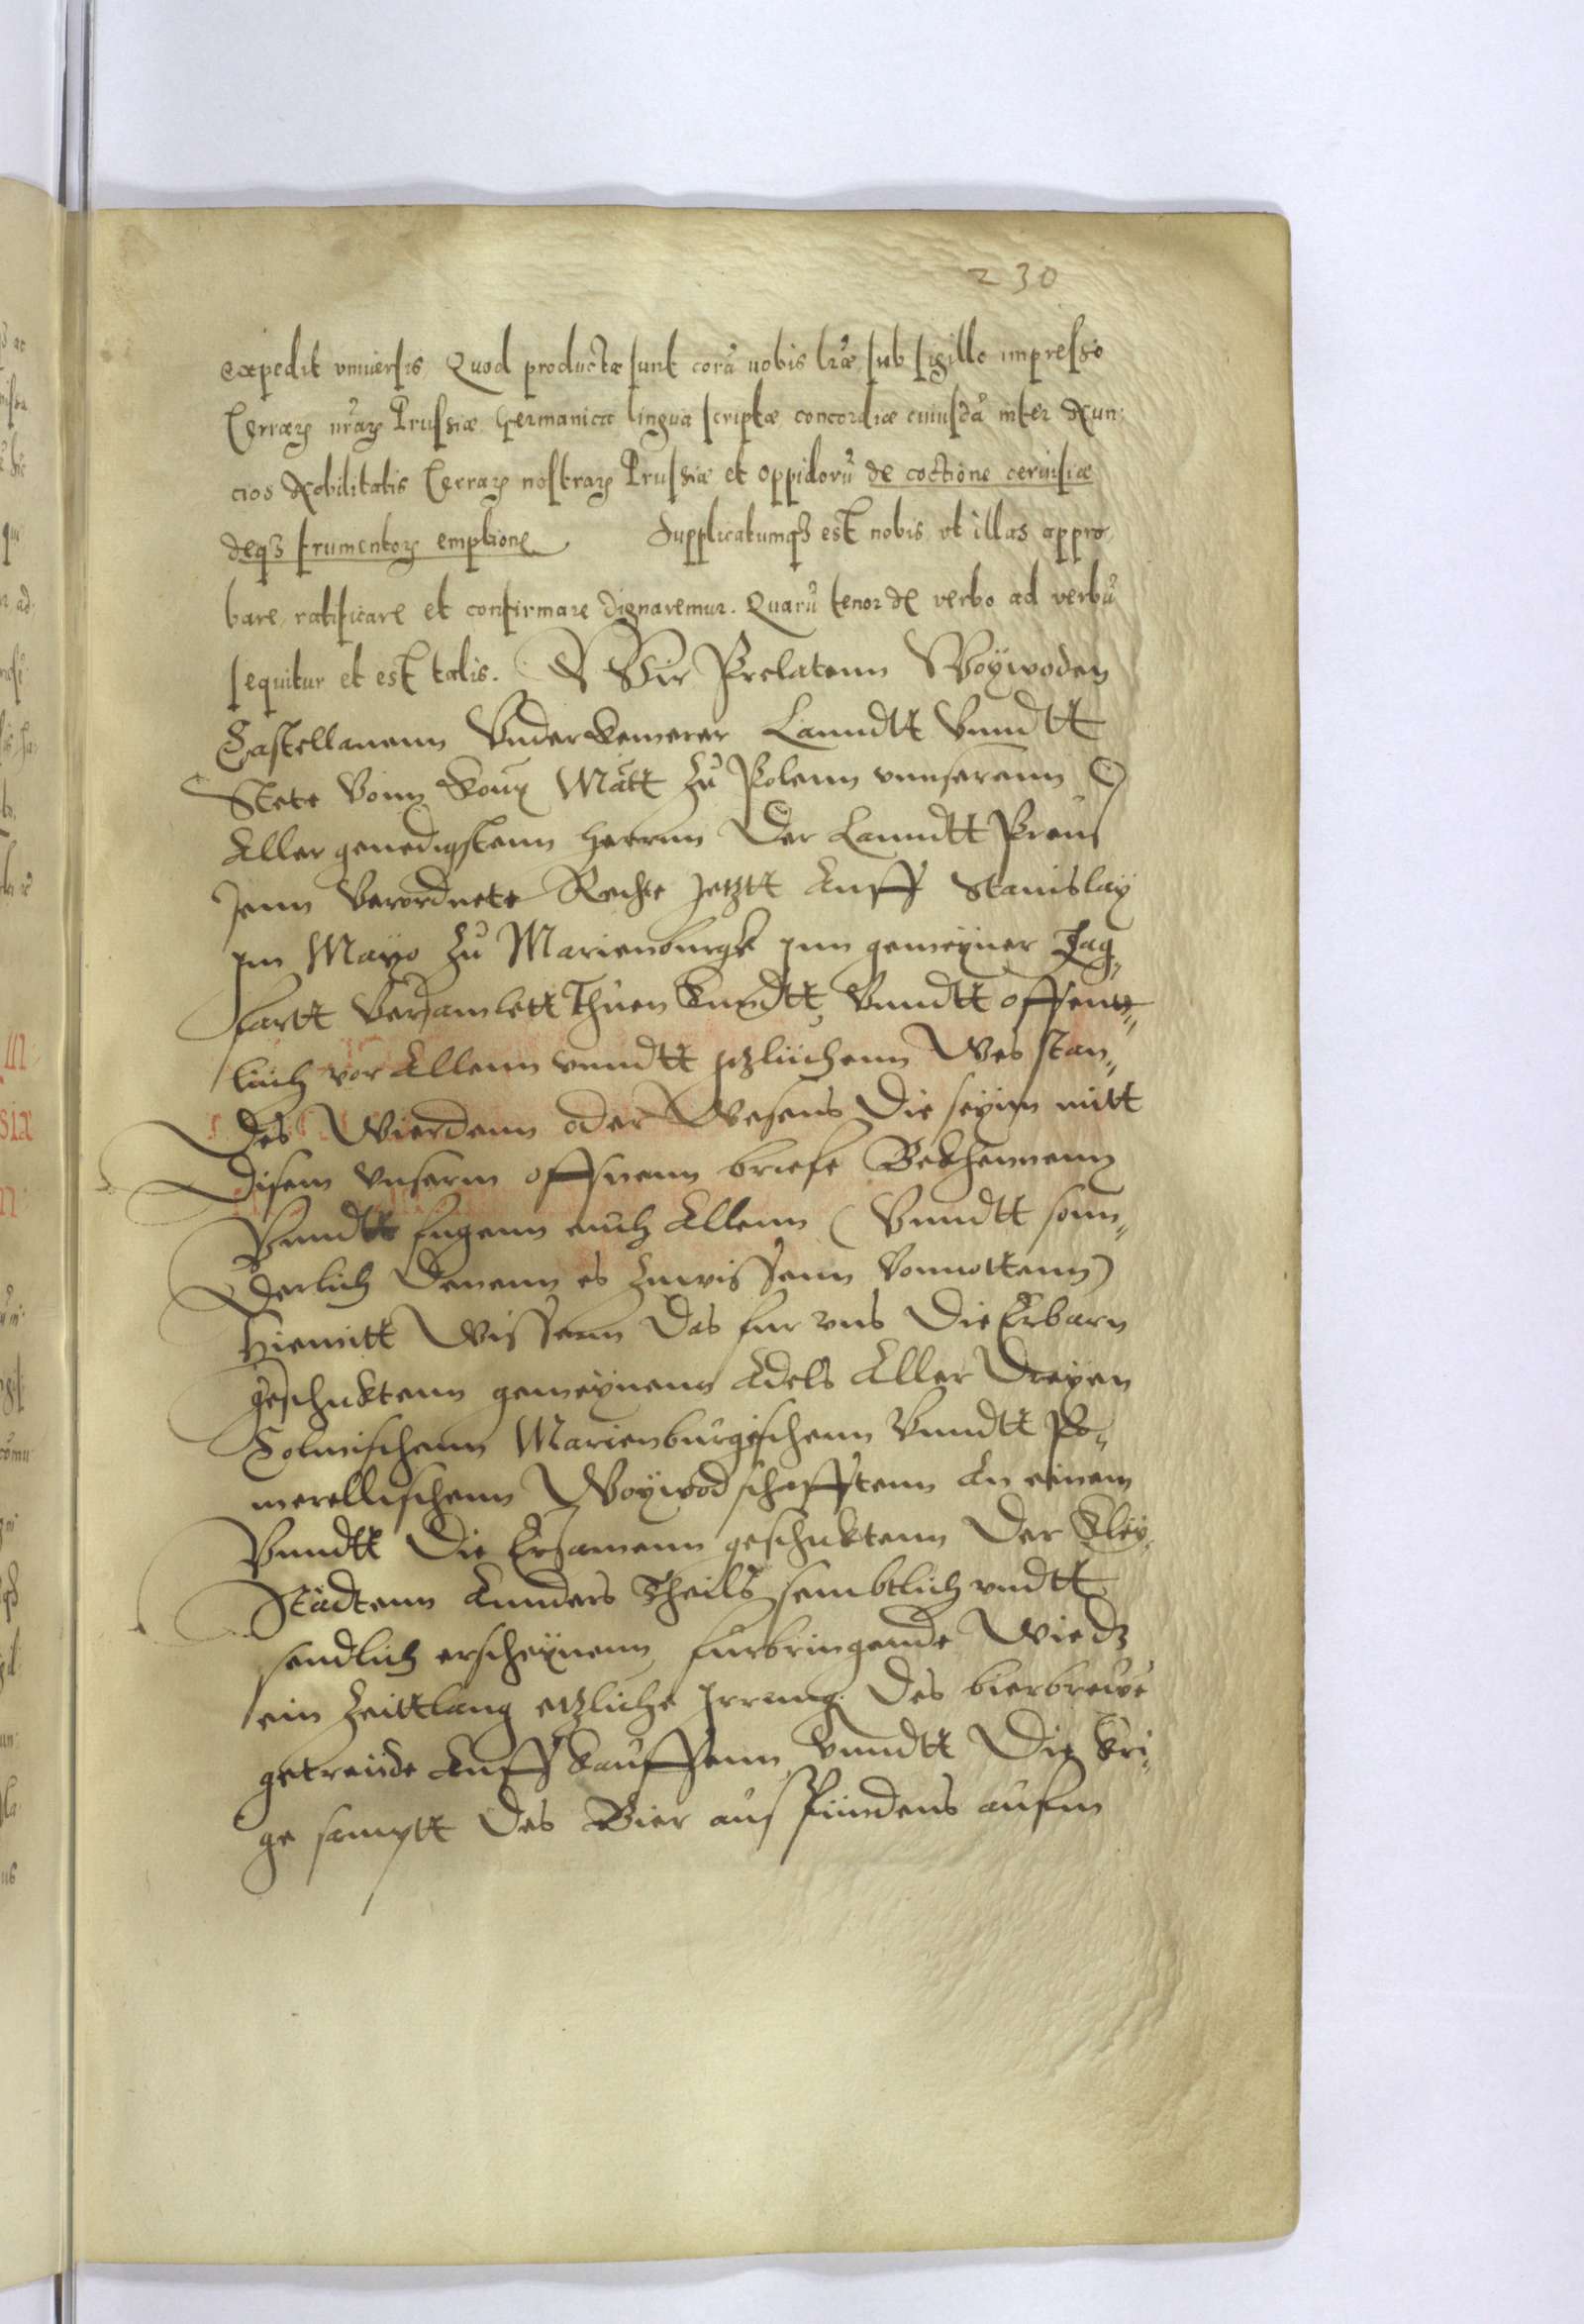 230
expedit vniuersis, Quod productæ sunt corā nobis lr̄æ sub sigillo impresso
Terrarꝫ nr̄arꝫ Prussiæ Germanica lingua scriptæ concordiæ cuiusdā inter Nun-
cios Nobilitatis Terrarꝫ nostrarꝫ Prussiæ et oppidorū de coctione ceruisiæ
deqꝫ frumentorꝫ emptione Supplicatumqꝫ est nobis vt illas appro-
bare, ratificare et confirmare dignaremur. Quarū tenor de verbo ad verbū
sequitur et est talis. Wir Prelatenn Woÿwoden
Castellanenn Vnderkemerer Lanndtt Vnndtt
Stete Vonn Kön Matt zu Polenn vnnserenn
Aller genedigstenn herrnn Der Lanndtt Preus
senn Verordnete Rethe Jetztt Auff Stanislaÿ
jm Mayo zu Marienburgk jnn gemeÿner Tag
fartt Versamlett Thuen Kundtt Vnndtt offent
lich vor Allenn vnndtt jtzlichenn Wes stan
des Wierdenn oder Wesens Die seyinn mitt
Disem vnserm offnenn briefe Bekhennenn
Vnndtt fugenn euch Allenn ( Vnndtt sonn
derlich Denenn es zuwissenn Vonnottenn)
Hiemitt Wissenn Das fur vns Die Erbarn
geschicktenn gemeÿnenn Adels Aller Dreyen
Colmischenn Marienburgischenn Vnndtt Po
merellischenn Woÿwodschafftenn An einem
Vnndtt Die Ersamenn geschicktenn Der Kleÿ
Städtenn Annders Theils sembtlich vndtt
sendlich erscheÿnenn furbringende Wie dz
ein Zeittlang etzliche Irrung Des bierbrewe
getreide Auff Kauffenn Vnndtt Die Kri
ge sampt Des Bier aus spündens aufm